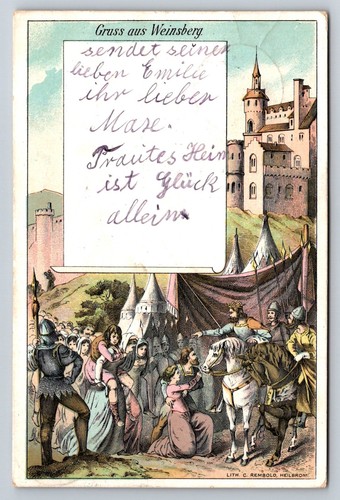 Gruss aus Weinsberg
sendet seiner
lieben Emilie
ihr lieber
Maxe.
Trautes Heim
ist Glück
allein
LITH. C. REMBOLD, HEILBRONN.